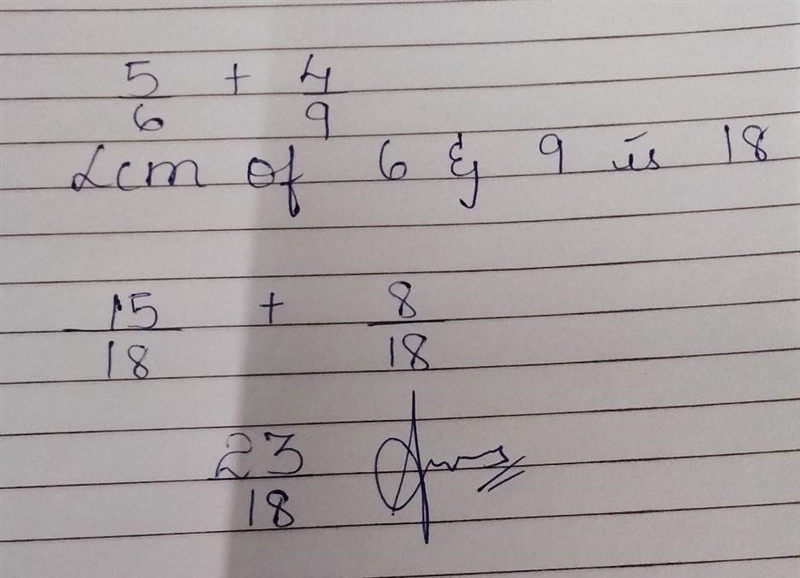 5/6 + 4/9
Lcm of 6 & 9 is 18
15/18 + 8/18
23/18 Ans